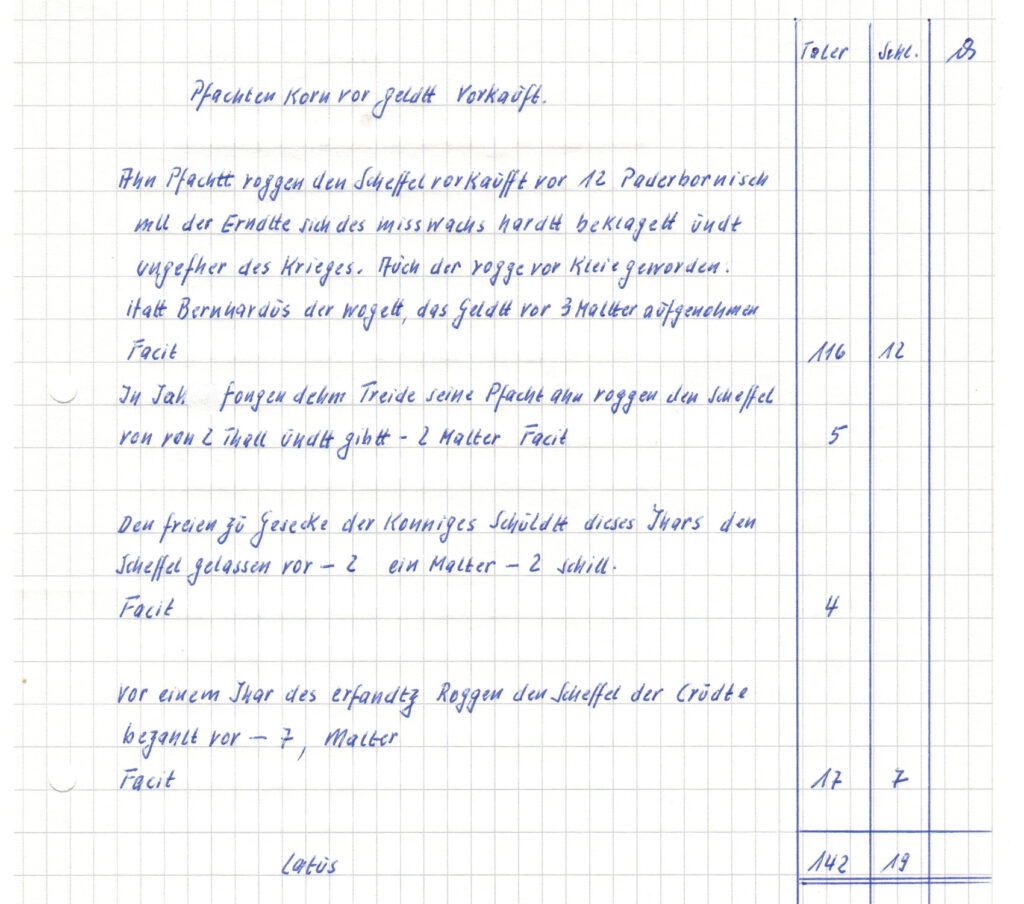 Taler Schl. ₰
Pfachten Korn vor geldtt vorkaüft.
Ahn Pfachtt roggen den Scheffel vorkaüfft vor 12 Paderbornisch
mll der Erndtte sich des misswachs hardt beklagett ündt
ungefher des Krieges. Aüch der rogge vor Kleie geworden.
itatt Bernhardüs der wogett, das Geldtt vor 3 Maltter aufgenohmen
Facit 116 12
In Jah fongen dehm Treide seine Pfacht ahn roggen den Scheffel
von von 2 Thall ündtt gibtt – 2 Malter Facit 5
Den freien zü Gesecke der Konniges Schüldtt dieses Jhars den
Scheffel gelassen vor – 2 ein Malter – 2 schill.
Facit 4
Vor einem Jhar des erfandtz Roggen den Scheffel der Crüdte
bezahlt vor – 7, Malter
Facit 17 7
Latüs 142 19